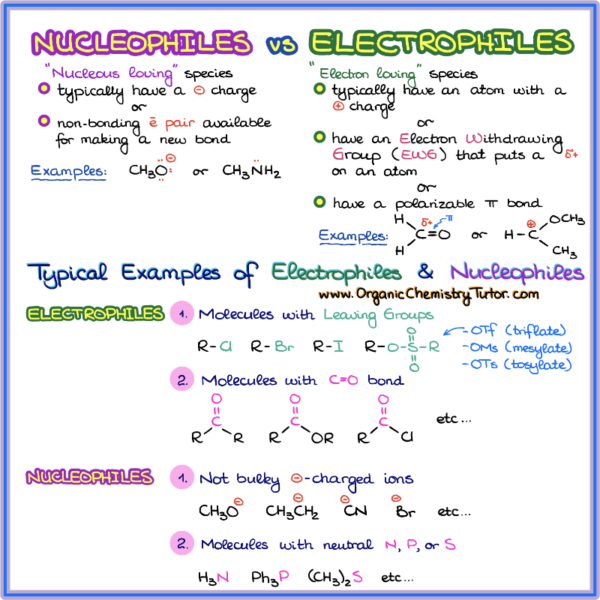 NUCLEOPHILES vs ELECTROPHILES
"Nucleous loving" species
typically have a ⊖ charge
or
non-bonding ē pair available
for making a new bond
Examples: CH₃O:⊖ or CH₃NH₂
"Electron loving" species
typically have an atom with a
⊕ charge
or
have an Electron Withdrawing
Group (EWG) that puts a δ+
on an atom
or
have a polarizable π bond
Examples: H H C=O δ+ π or H-C ⊕ OCH₃ CH₃
Typical Examples of Electrophiles & Nucleophiles
www.OrganicChemistryTutor.com
ELECTROPHILES
1. Molecules with Leaving Groups
R-Cl R-Br R-I R-O-S-R O O
-OTf (triflate)
-OMs (mesylate)
-OTs (tosylate)
2. Molecules with C=O bond
O O O
C C C etc...
R R R OR R Cl
NUCLEOPHILES
1. Not bulky ⊖-charged ions
CH₃O⊖ CH₃CH₂⊖ ⊖CN Br⊖ etc...
2. Molecules with neutral N, P, or S
H₃N Ph₃P (CH₃)₂S etc...